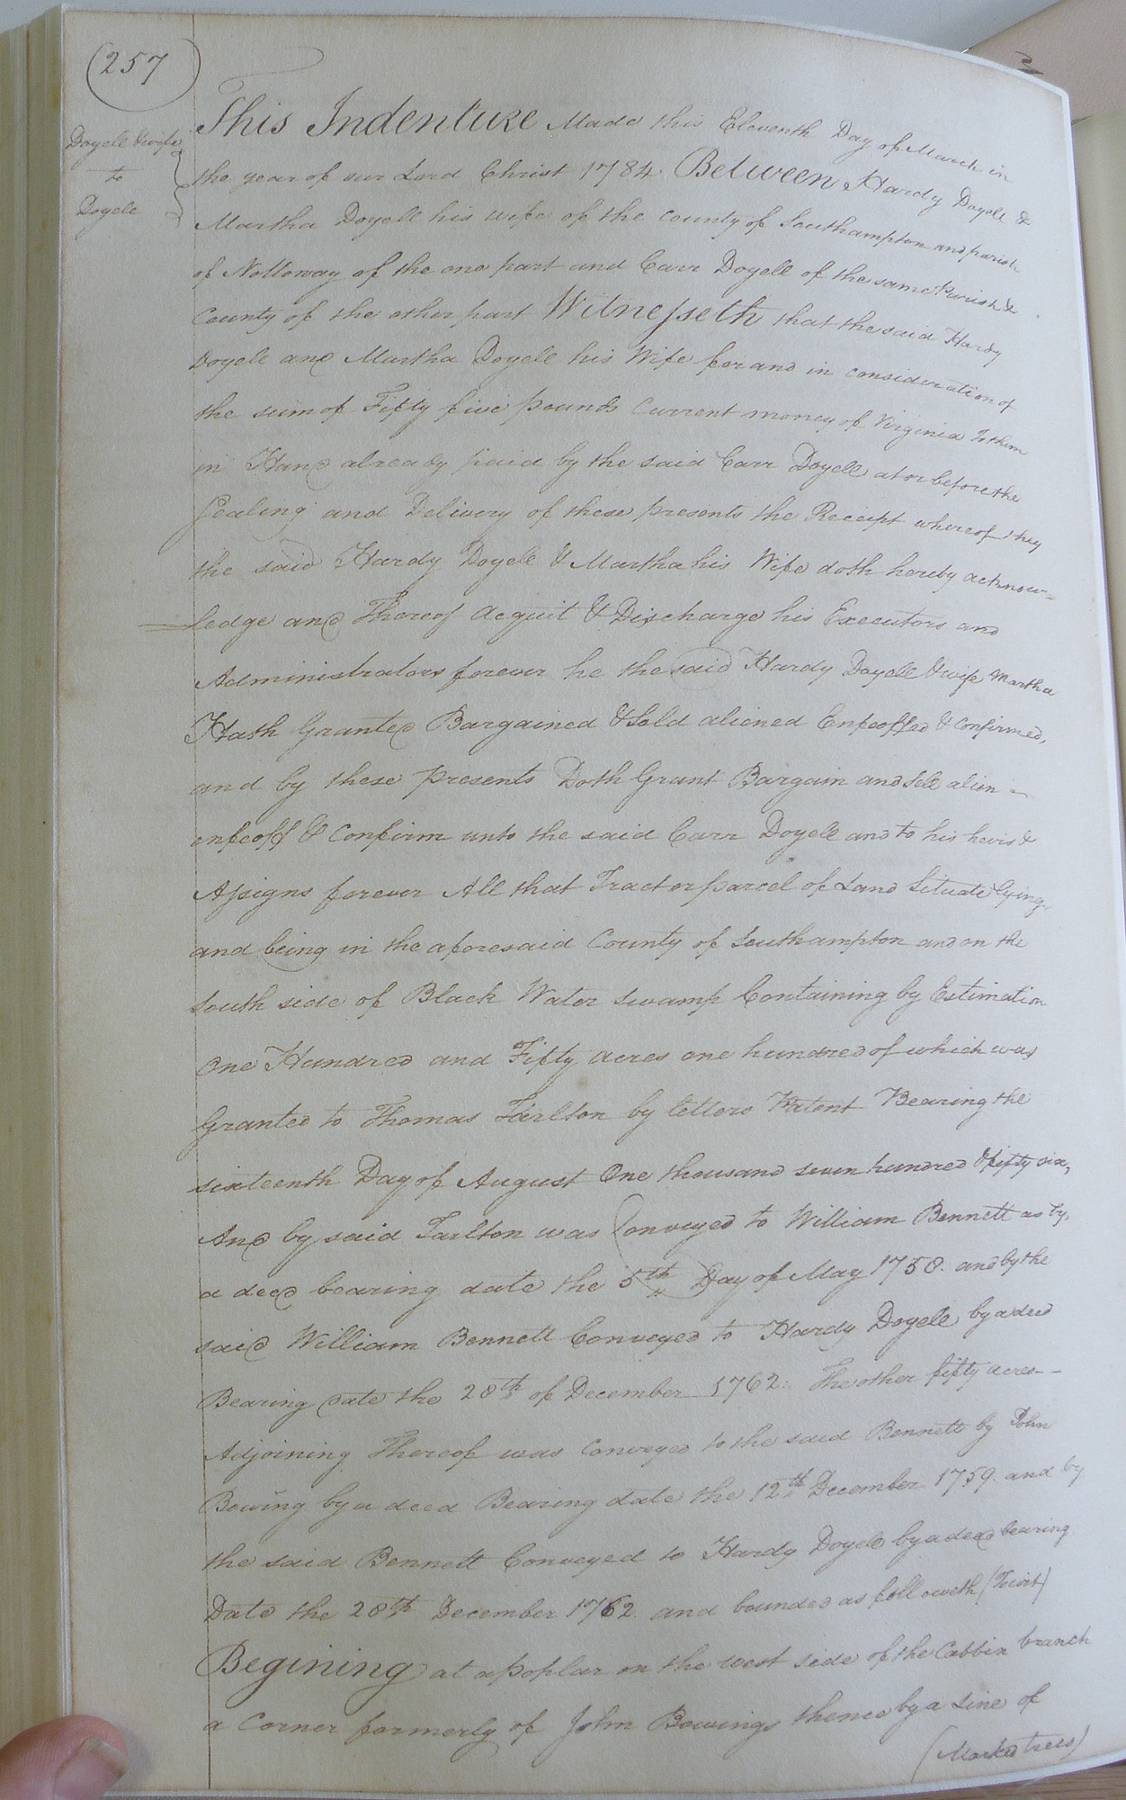 (257)
Doyell & wife
to
Doyele
This Indenture Made this Eleventh Day of March in
the year of our Lord Christ 1784 Between Hardy Doyell &
Martha Doyell his wife of the County of Southampton and parish
of Nottoway of the one part and Carr Doyell of the same Parish &
County of the other part Witnesseth that the said Hardy
Doyele and Martha Doyell his Wife for and in consideration of
the sum of Fifty five pounds Current money of Virginia to them
in Hand already paid by the said Carr Doyell at or before the
Sealing and Delivery of these presents the Receipt whereof they
the said Hardy Doyell & Martha his Wife doth hereby acknow=
=ledge and Thereof acquit & Discharge his Executors and
Administrators forever he the said Hardy Doyell & wife Martha
Hath Granted Bargained & Sold aliened Enfeoffed & Confirmed,
and by these presents Doth Grant Bargain and Sell alien -
enfeoff & Confirm unto the said Carr Doyell and to his heirs &
Assigns forever All that Tract or parcel of Land Situate lying
and being in the aforesaid County of Southampton and on the
South side of Black Water Swamp Containing by Estimation
One Hundred and Fifty acres one hundred of which was
Granted to Thomas Tarlton by letters Patent Bearing the
sixteenth Day of August One thousand seven hundred & fifty six,
And by said Tarlton was Conveyed to William Bennett as by,
a deed bearing date the 5th Day of May 1758. and by the
said William Bennett Conveyed to Hardy Doyele by a deed
Bearing date the 28th of December 1762. The other fifty acres -
Adjoining Thereof was Conveyed to the said Bennett by John
Bowing by a deed Bearing date the 12th December 1759. and by
the said Bennett Conveyed to Hardy Doyele by a deed bearing
Date the 28th December 1762 and bounded as followeth (Towit)
Begining at a poplar on the west side of the Cabbin branch
a Corner formerly of John Bowings thence by a Line of
(Marked trees)